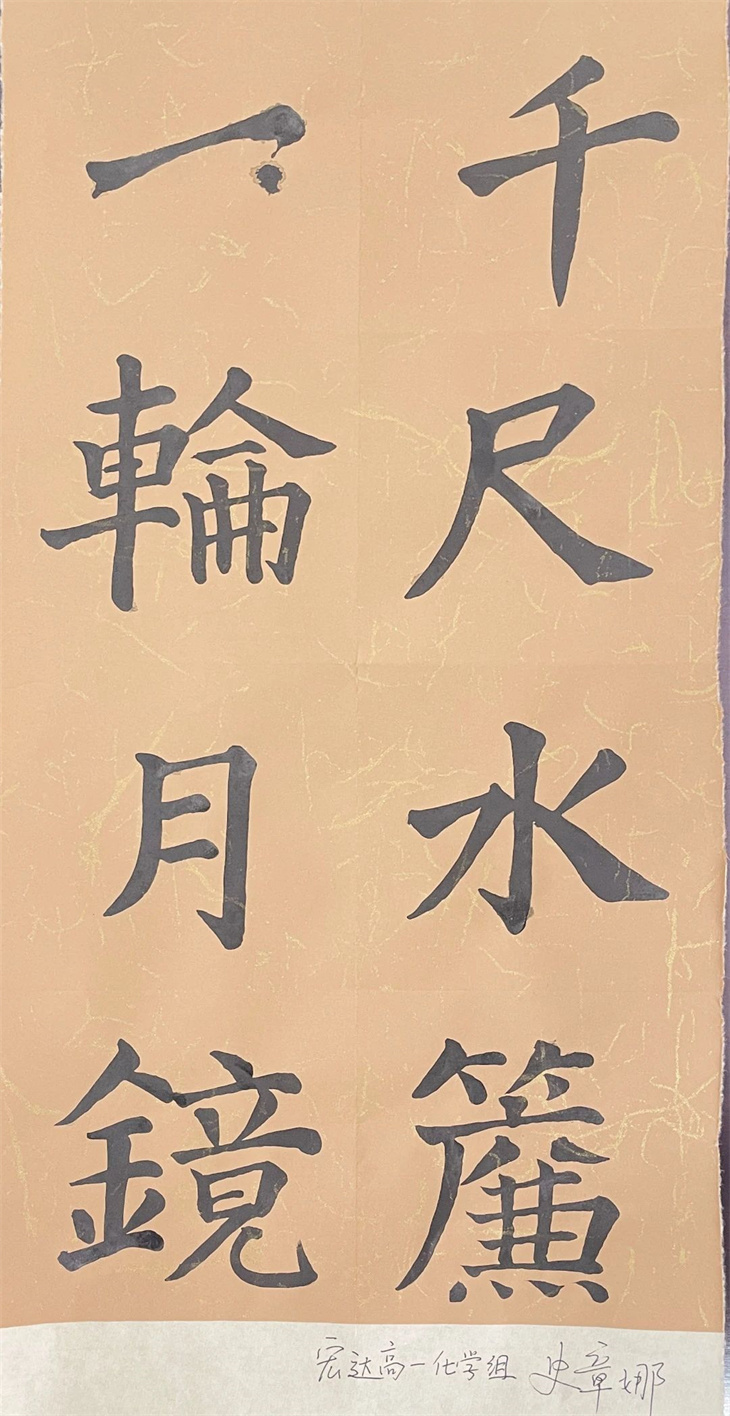 千尺水簾
一輪月鏡
宏达高一化学组 史章娜